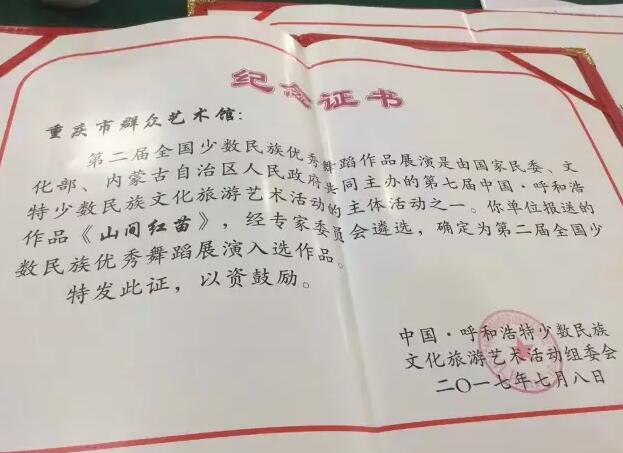 纪念证书
重庆市群众艺术馆：
第二届全国少数民族优秀舞蹈作品展演是由国家民委、文
化部、内蒙古自治区人民政府共同主办的第七届中国·呼和浩
特少数民族文化旅游艺术活动的主体活动之一。你单位报送的
作品《山间红苗》，经专家委员会遴选，确定为第二届全国少
数民族优秀舞蹈展演入选作品。
特发此证，以资鼓励。
中国·呼和浩特少数民族
文化旅游艺术活动组委会
二〇一七年七月八日